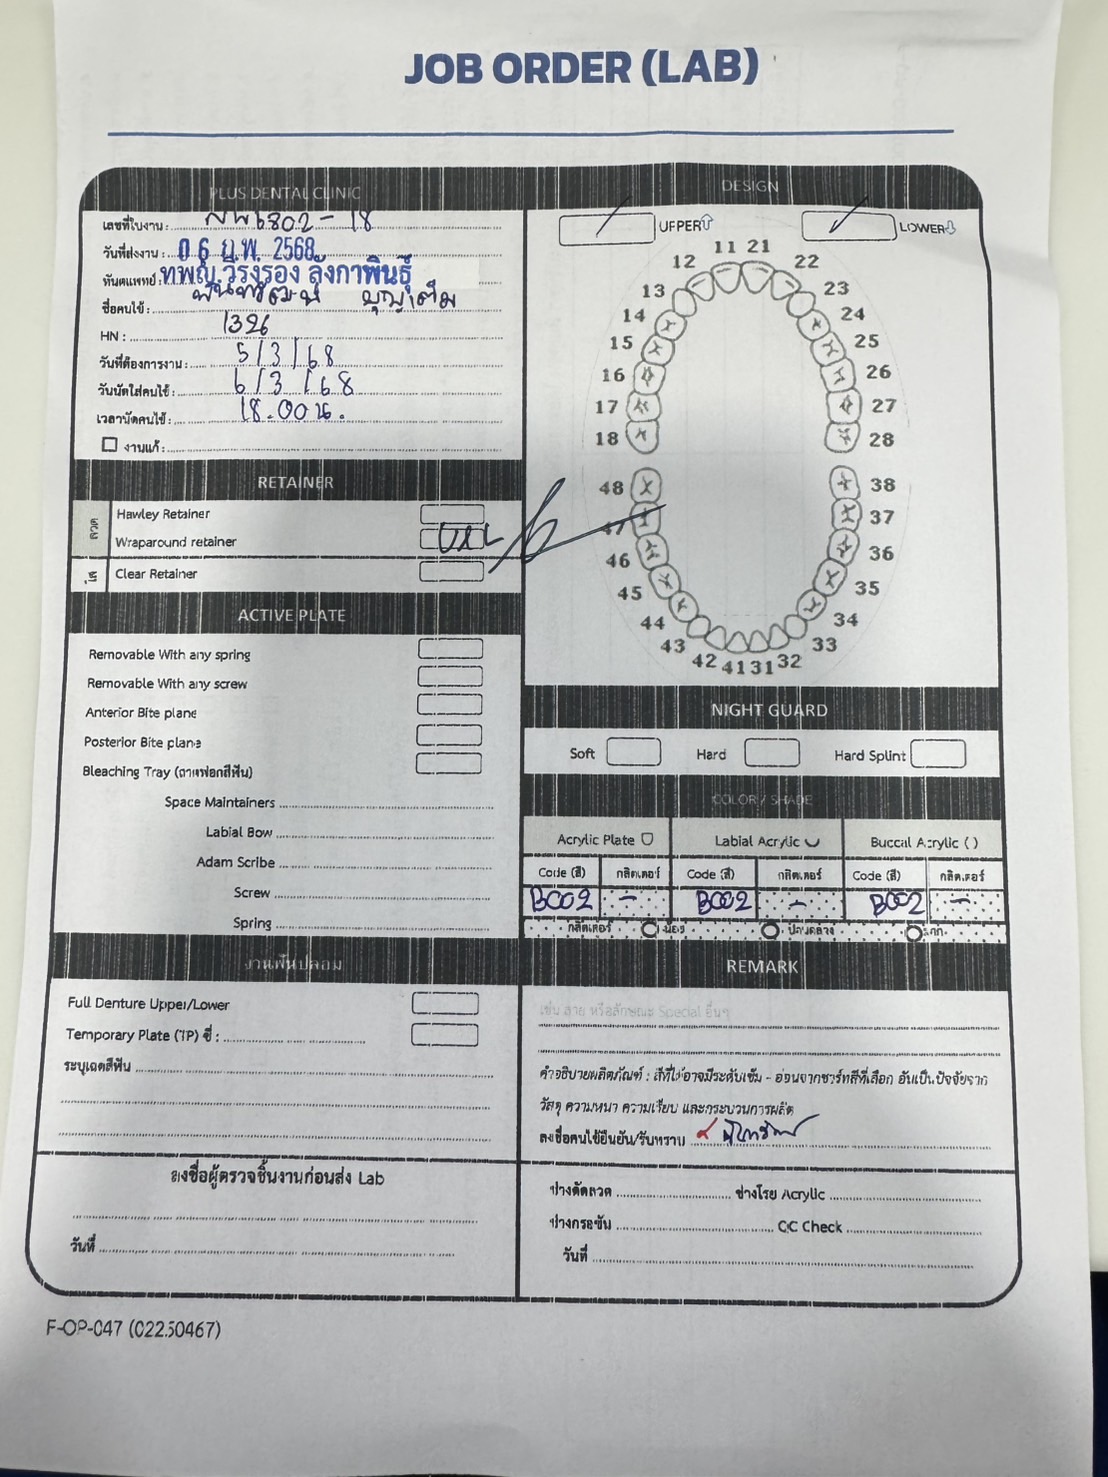 JOB ORDER (LAB)
PLUS DENTAL CLINIC
เลขที่ใบงาน : 6802-18
วันที่ส่งงาน : 06 ก.พ. 2568
ทันตแพทย์ : ทพญ.วีรงรอง ลังกาพินธุ์
ชื่อคนไข้ : บุญเต็ม
HN : 1326
วันที่ต้องการงาน : 5/3/68
วันนัดใส่คนไข้ : 6/3/68
เวลานัดคนไข้ : 18.00 น.
งานแก้ :
RETAINER
ลวด
Hawley Retainer
Wraparound retainer บน
ใส
Clear Retainer
ACTIVE PLATE
Removable With any spring
Removable With any screw
Anterior Bite plane
Posterior Bite plane
Bleaching Tray (ถาดฟอกสีฟัน)
Space Maintainers
Labial Bow
Adam Scribe
Screw
Spring
งานฟันปลอม
Full Denture Upper/Lower
Temporary Plate (TP) ซี่ :
ระบุเฉดสีฟัน
ลงชื่อผู้ตรวจชิ้นงานก่อนส่ง Lab
วันที่
DESIGN
UPPER LOWER
11 21
12 22
13 23
14 24
15 25
16 26
17 27
18 28
48 38
47 37
46 36
45 35
44 34
43 33
42 41 31 32
NIGHT GUARD
Soft Hard Hard Splint
COLOR / SHADE
Acrylic Plate Labial Acrylic Buccal Acrylic ( )
Code (สี) กลิตเตอร์ Code (สี) กลิตเตอร์ Code (สี) กลิตเตอร์
B002 - B002 - B002 -
กลิตเตอร์ น้อย ปานกลาง มาก
REMARK
เช่น ลาย หรือลักษณะ Special อื่นๆ
คำอธิบายผลิตภัณฑ์ : สีที่ได้อาจมีระดับเข้ม - อ่อนจากชาร์ทสีที่เลือก อันเป็นปัจจัยจาก
วัสดุ ความหนา ความเรียบ และกระบวนการผลิต
ลงชื่อคนไข้ยืนยัน/รับทราบ
ช่างดัดลวด ช่างโรย Acrylic
ช่างกรอขัด QC Check
วันที่
F-OP-047 (02250467)